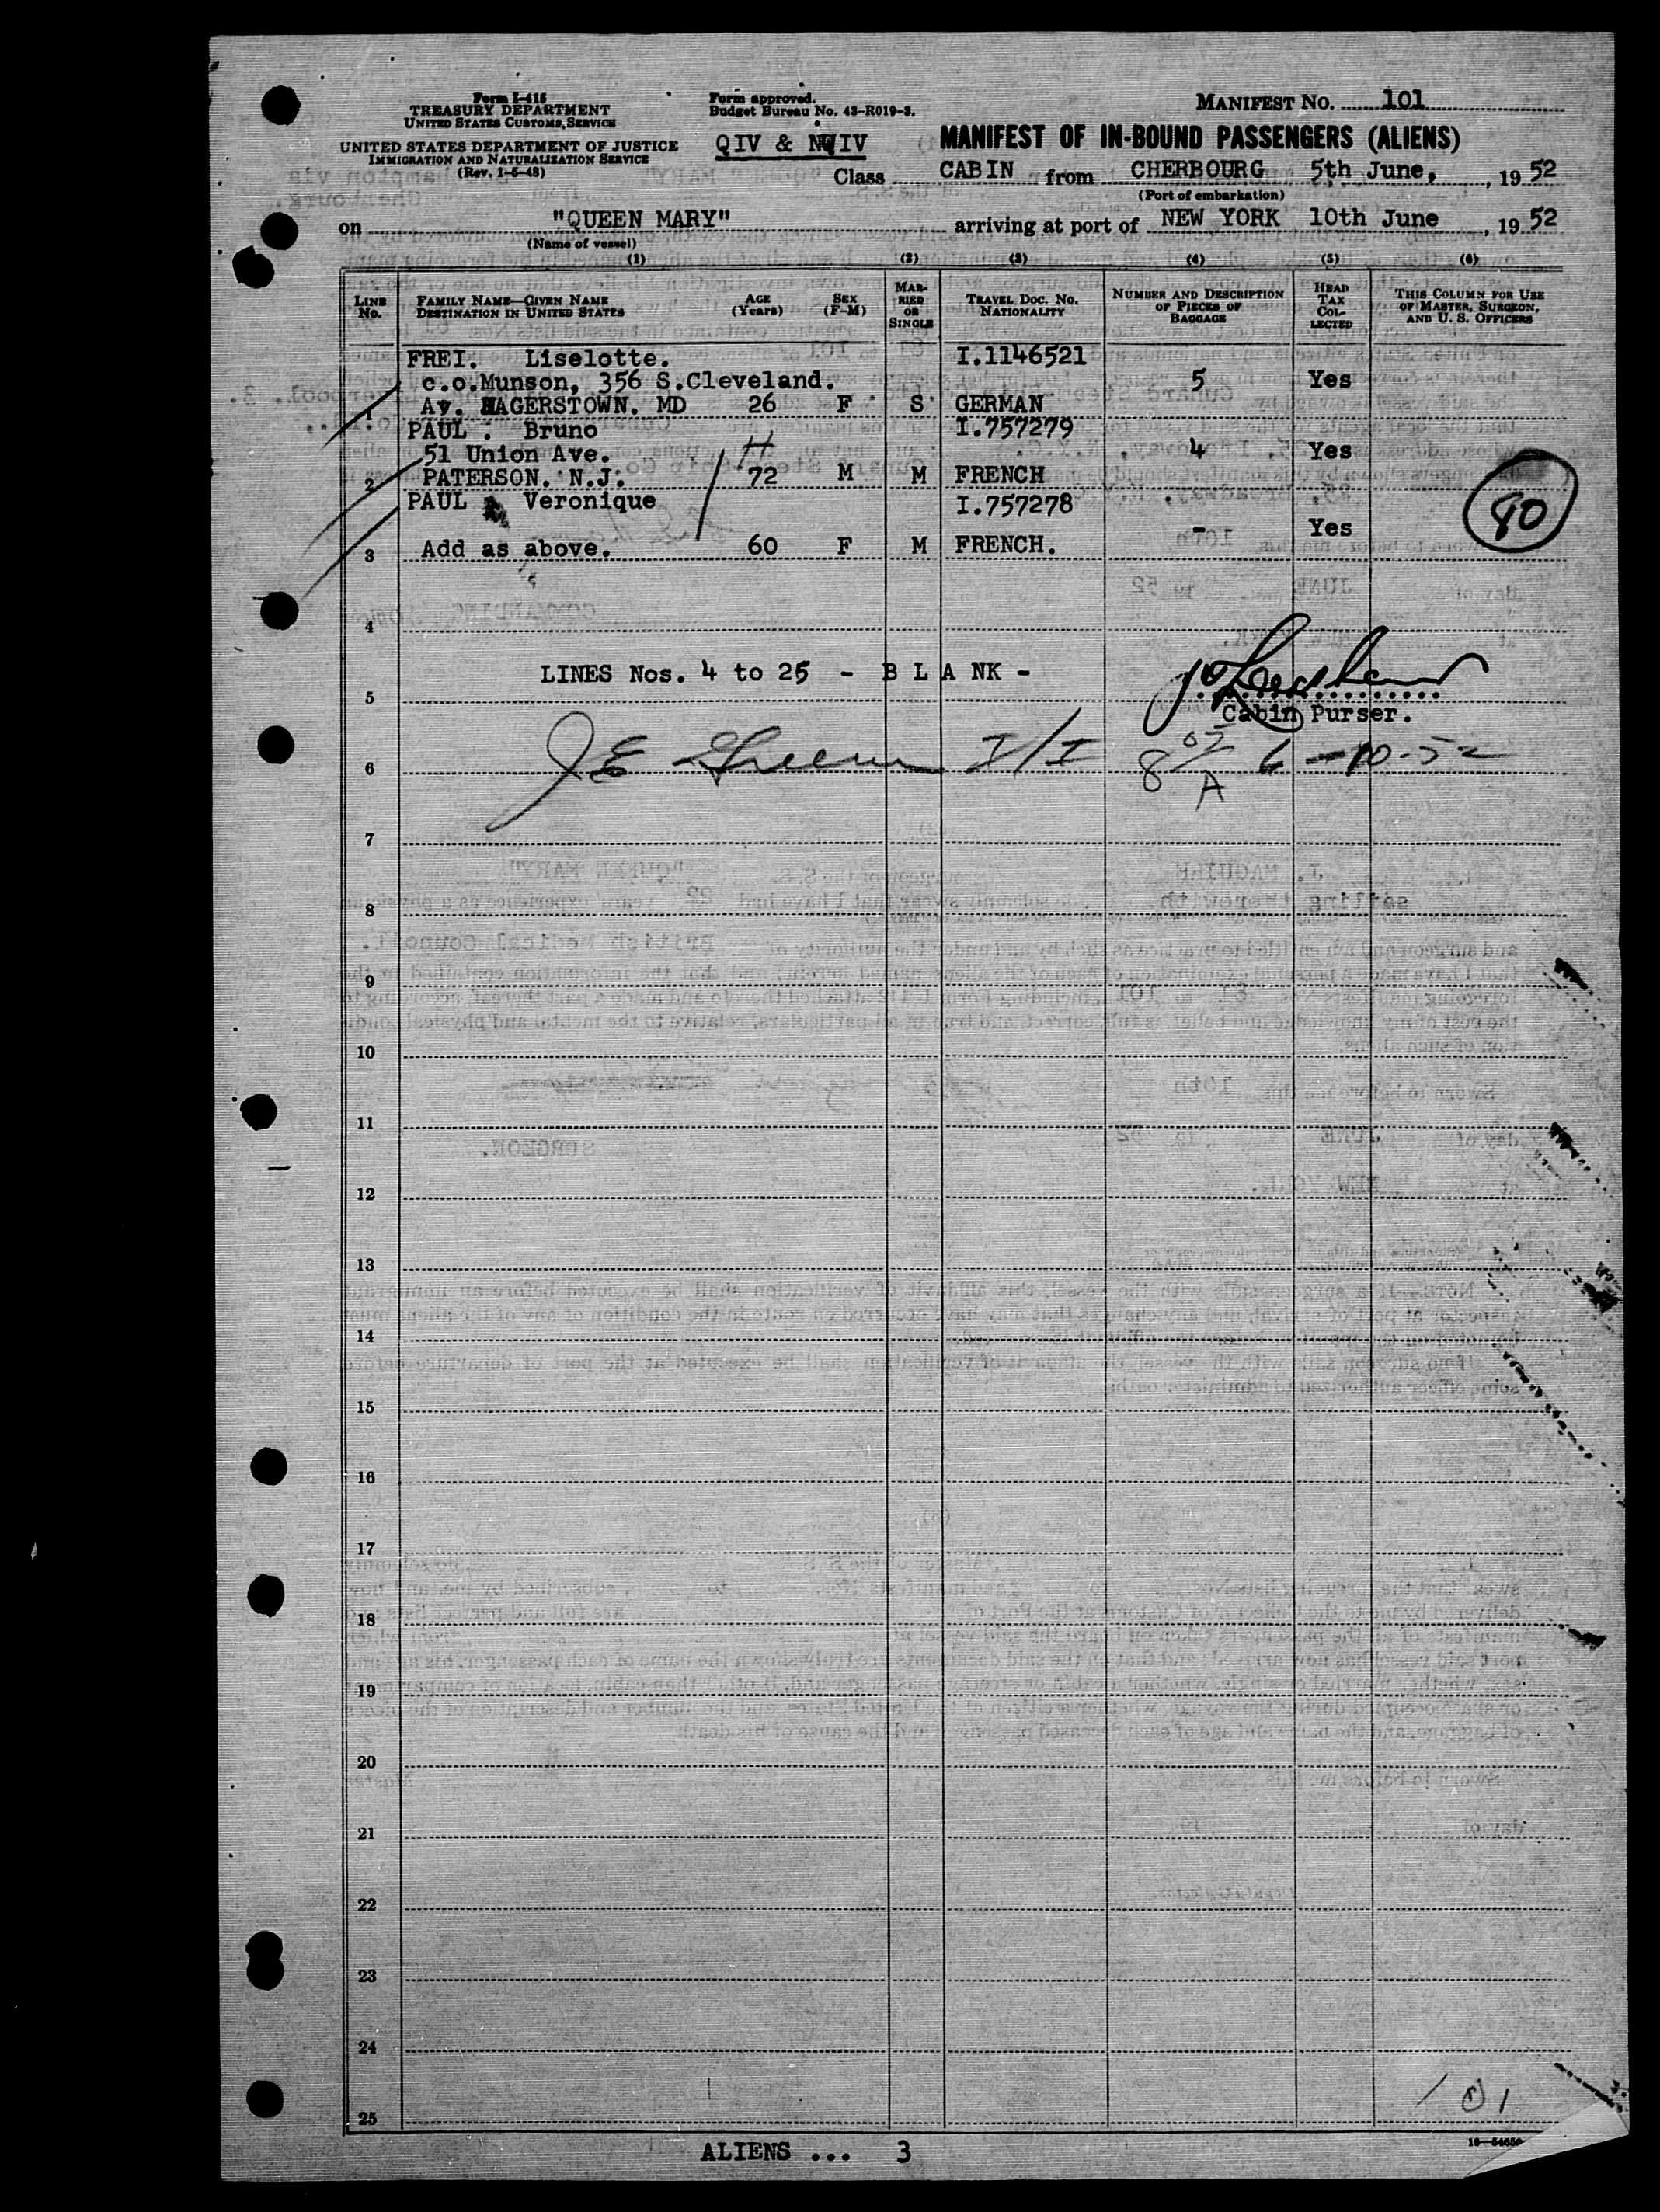 Form I-415
TREASURY DEPARTMENT
UNITED STATES CUSTOMS SERVICE
UNITED STATES DEPARTMENT OF JUSTICE
IMMIGRATION AND NATURALIZATION SERVICE
(Rev. 1-5-48)
Form approved.
Budget Bureau No. 43-R019-3.
QIV & NQIV
MANIFEST NO. 101
MANIFEST OF IN-BOUND PASSENGERS (ALIENS)
Class CABIN from CHERBOURG 5th June, , 19 52
(Port of embarkation)
on "QUEEN MARY" arriving at port of NEW YORK 10th June , 19 52
(Name of vessel)
(1) (2) (3) (4) (5) (6)
LINE No. FAMILY NAME—GIVEN NAME DESTINATION IN UNITED STATES AGE (Years) SEX (F-M) MARRIED OR SINGLE TRAVEL DOC. NO. NATIONALITY NUMBER AND DESCRIPTION OF PIECES OF BAGGAGE HEAD TAX COLLECTED THIS COLUMN FOR USE OF MASTER, SURGEON, AND U. S. OFFICERS
FREI. Liselotte. I.1146521
c.o.Munson, 356 S.Cleveland. 5 Yes
1 Av. HAGERSTOWN. MD 26 F S GERMAN
PAUL . Bruno I.757279
51 Union Ave. H 4 Yes
2 PATERSON. N.J. 72 M M FRENCH
PAUL Veronique I.757278
- Yes
80
3 Add as above. 60 F M FRENCH.
4
LINES Nos. 4 to 25 - B L A NK -
5
Cabin Purser.
6 J E Greene I/I 8 05 A 6-10-52
7
8
9
10
11
12
13
14
15
16
17
18
19
20
21
22
23
24
101
25
ALIENS ... 3